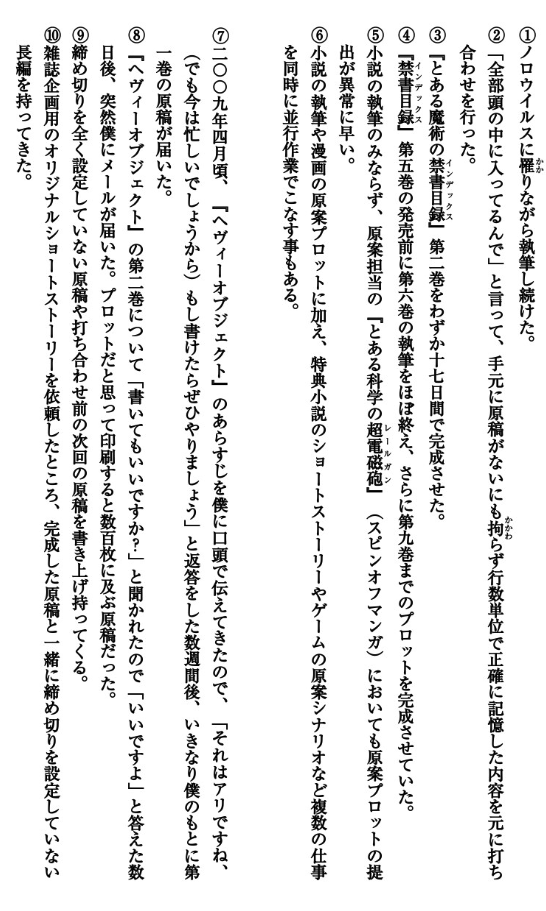 ①ノロウイルスに罹りながら執筆し続けた。
②「全部頭の中に入ってるんで」と言って、手元に原稿がないにも拘らず行数単位で正確に記憶した内容を元に打ち
合わせを行った。
③『とある魔術の禁書目録』第二巻をわずか十七日間で完成させた。
④『禁書目録』第五巻の発売前に第六巻の執筆をほぼ終え、さらに第九巻までのプロットを完成させていた。
⑤小説の執筆のみならず、原案担当の『とある科学の超電磁砲』（スピンオフマンガ）においても原案プロットの提
出が異常に早い。
⑥小説の執筆や漫画の原案プロットに加え、特典小説のショートストーリーやゲームの原案シナリオなど複数の仕事
を同時に並行作業でこなす事もある。
⑦二〇〇九年四月頃、『ヘヴィーオブジェクト』のあらすじを僕に口頭で伝えてきたので、「それはアリですね、
（でも今は忙しいでしょうから）もし書けたらぜひやりましょう」と返答をした数週間後、いきなり僕のもとに第
一巻の原稿が届いた。
⑧『ヘヴィーオブジェクト』の第二巻について「書いてもいいですか？」と聞かれたので「いいですよ」と答えた数
日後、突然僕にメールが届いた。プロットだと思って印刷すると数百枚に及ぶ原稿だった。
⑨締め切りを全く設定していない原稿や打ち合わせ前の次回の原稿を書き上げ持ってくる。
⑩雑誌企画用のオリジナルショートストーリーを依頼したところ、完成した原稿と一緒に締め切りを設定していない
長編を持ってきた。